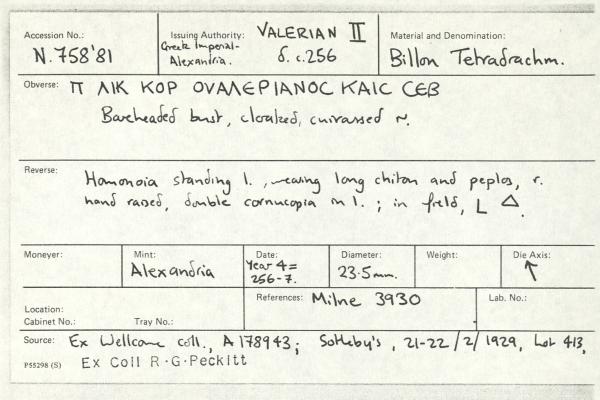 Accession No.:
N.758'81
Issuing Authority: VALERIAN II
Greek Imperial-
Alexandria. d. c.256
Material and Denomination:
Billon Tetradrachm.
Obverse: Π ΛΙΚ ΚΟΡ ΟΥΑΛΕΡΙΑΝΟC ΚΑΙC CΕΒ
Bareheaded bust, cloaked, cuirassed r.
Reverse: Homonoia standing l., wearing long chiton and peplos, r.
hand raised, double cornucopia in l.; in field, L Δ.
Moneyer:
Mint:
Alexandria
Date:
Year 4=
256-7.
Diameter:
23.5mm.
Weight:
Die Axis:
↖
Location:
Cabinet No.: Tray No.:
References: Milne 3930
Lab. No.:
Source: Ex Wellcome coll., A178943; Sotheby's, 21-22/2/1929, Lot 413,
P55298 (S) Ex Coll R.G.Peckitt